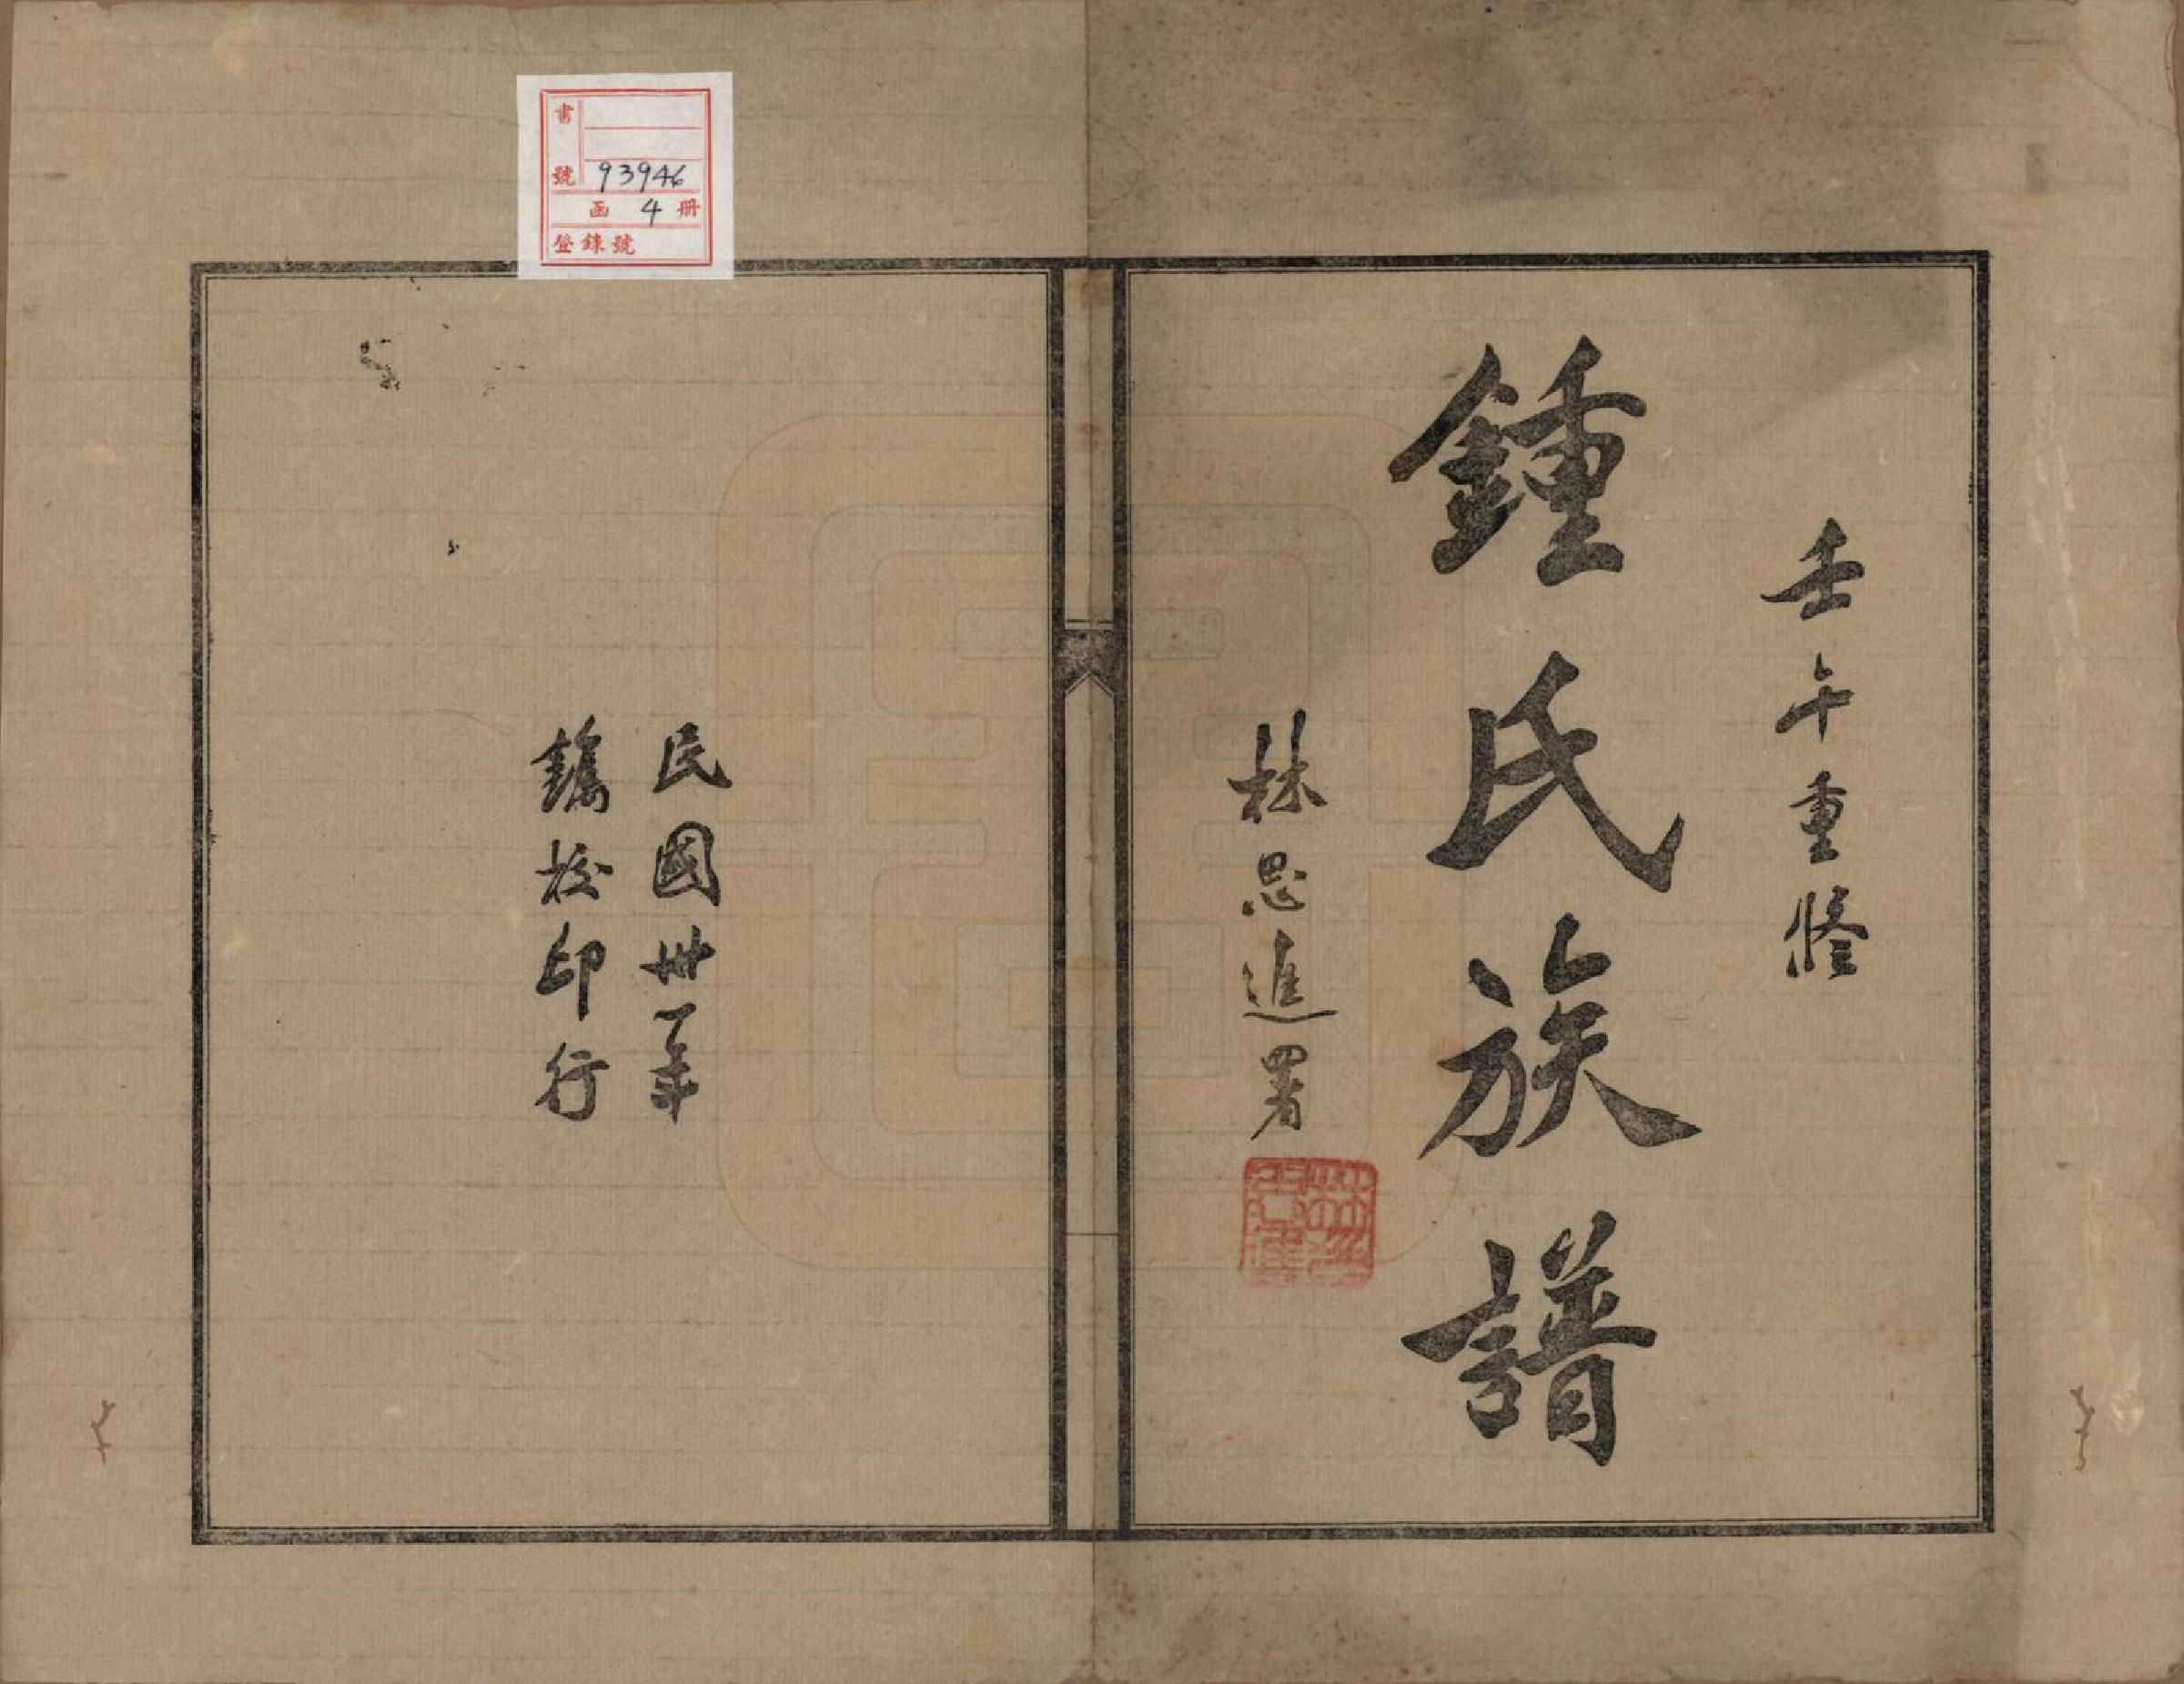 壬午重修
鍾氏族譜
林思進署
民國卅一年
鐫校印行
書號 93946
函 4 册
登錄號